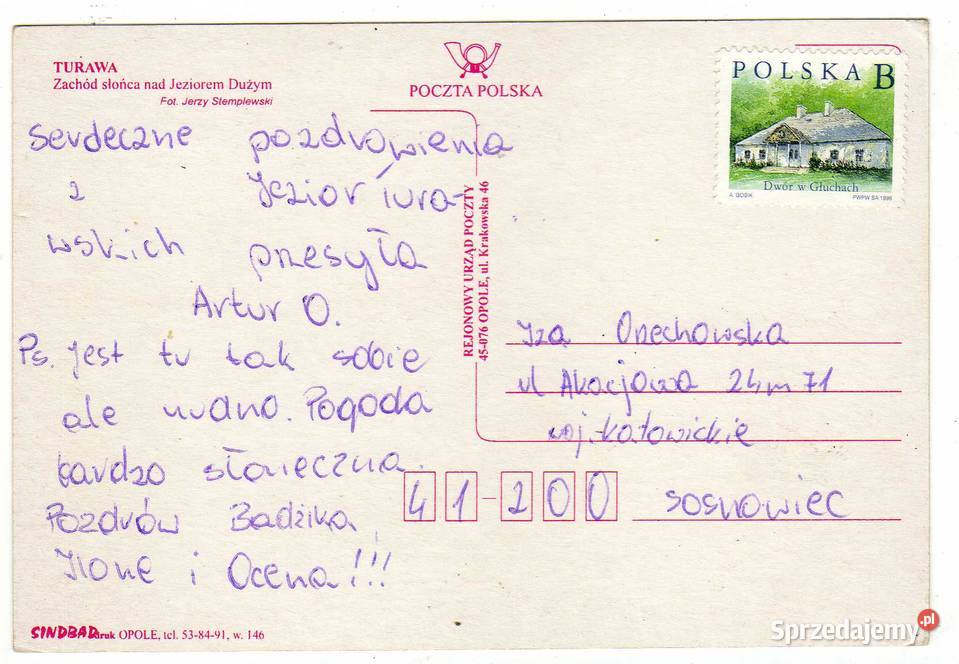 TURAWA
Zachód słońca nad Jeziorem Dużym
Fot. Jerzy Stemplewski
POCZTA POLSKA
POLSKA B
Dwór w Głuchach
A. GOSIK
PWPW SA 1998
Serdeczne pozdrowienia
z Jezior Tura-
wskich przesyła
Artur O.
Ps. Jest tu tak sobie
ale nudno. Pogoda
bardzo słoneczna.
Pozdrów Badžika,
Ilone i Ocena!!!
REJONOWY URZĄD POCZTY
45-076 OPOLE, ul. Krakowska 46
Iza Orzechowska
ul Akacjowa 24m 71
woj. Katowickie
41-200 Sosnowiec
SINDBAD druk OPOLE, tel. 53-84-91, w. 146
Sprzedajemy.pl